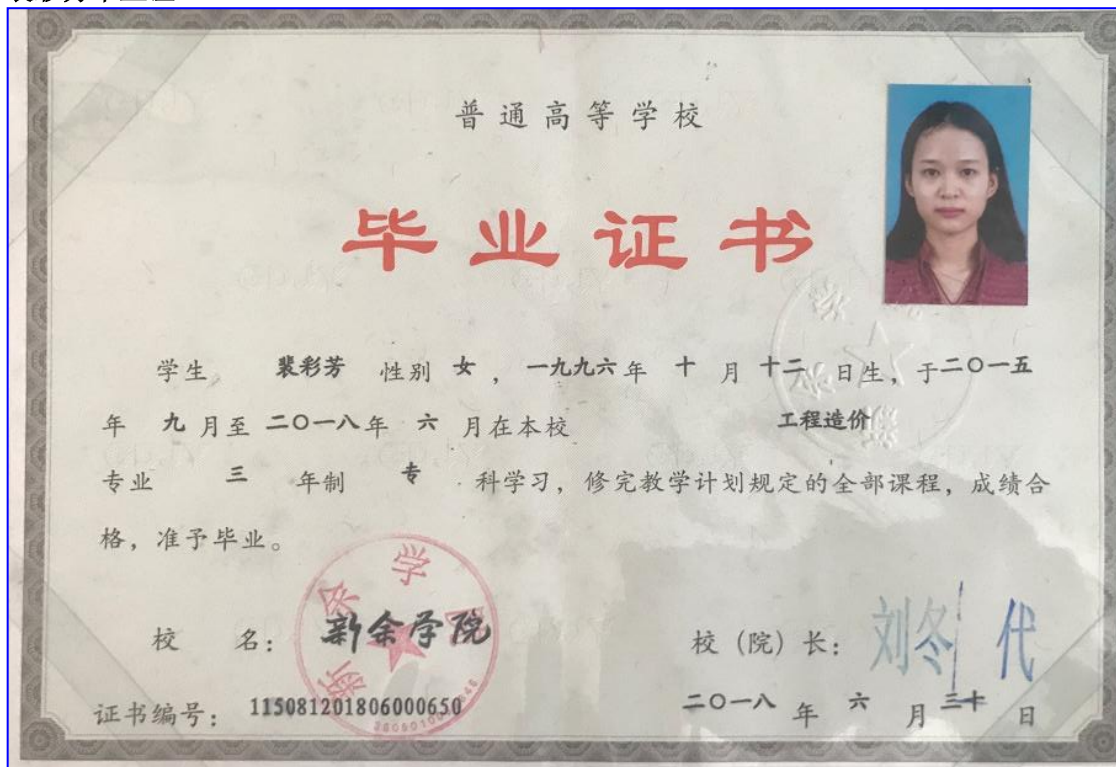 普通高等学校
毕业证书
学生 裴彩芳 性别 女 ，一九九六年 十 月 十二 日生，于二〇一五
年 九 月至 二〇一八年 六 月在本校 工程造价
专业 三 年制 专 科学习，修完教学计划规定的全部课程，成绩合
格，准予毕业。
校 名：新余学院
校（院）长：刘冬 代
证书编号：115081201806000650
二〇一八 年 六 月 三十 日
新余学院